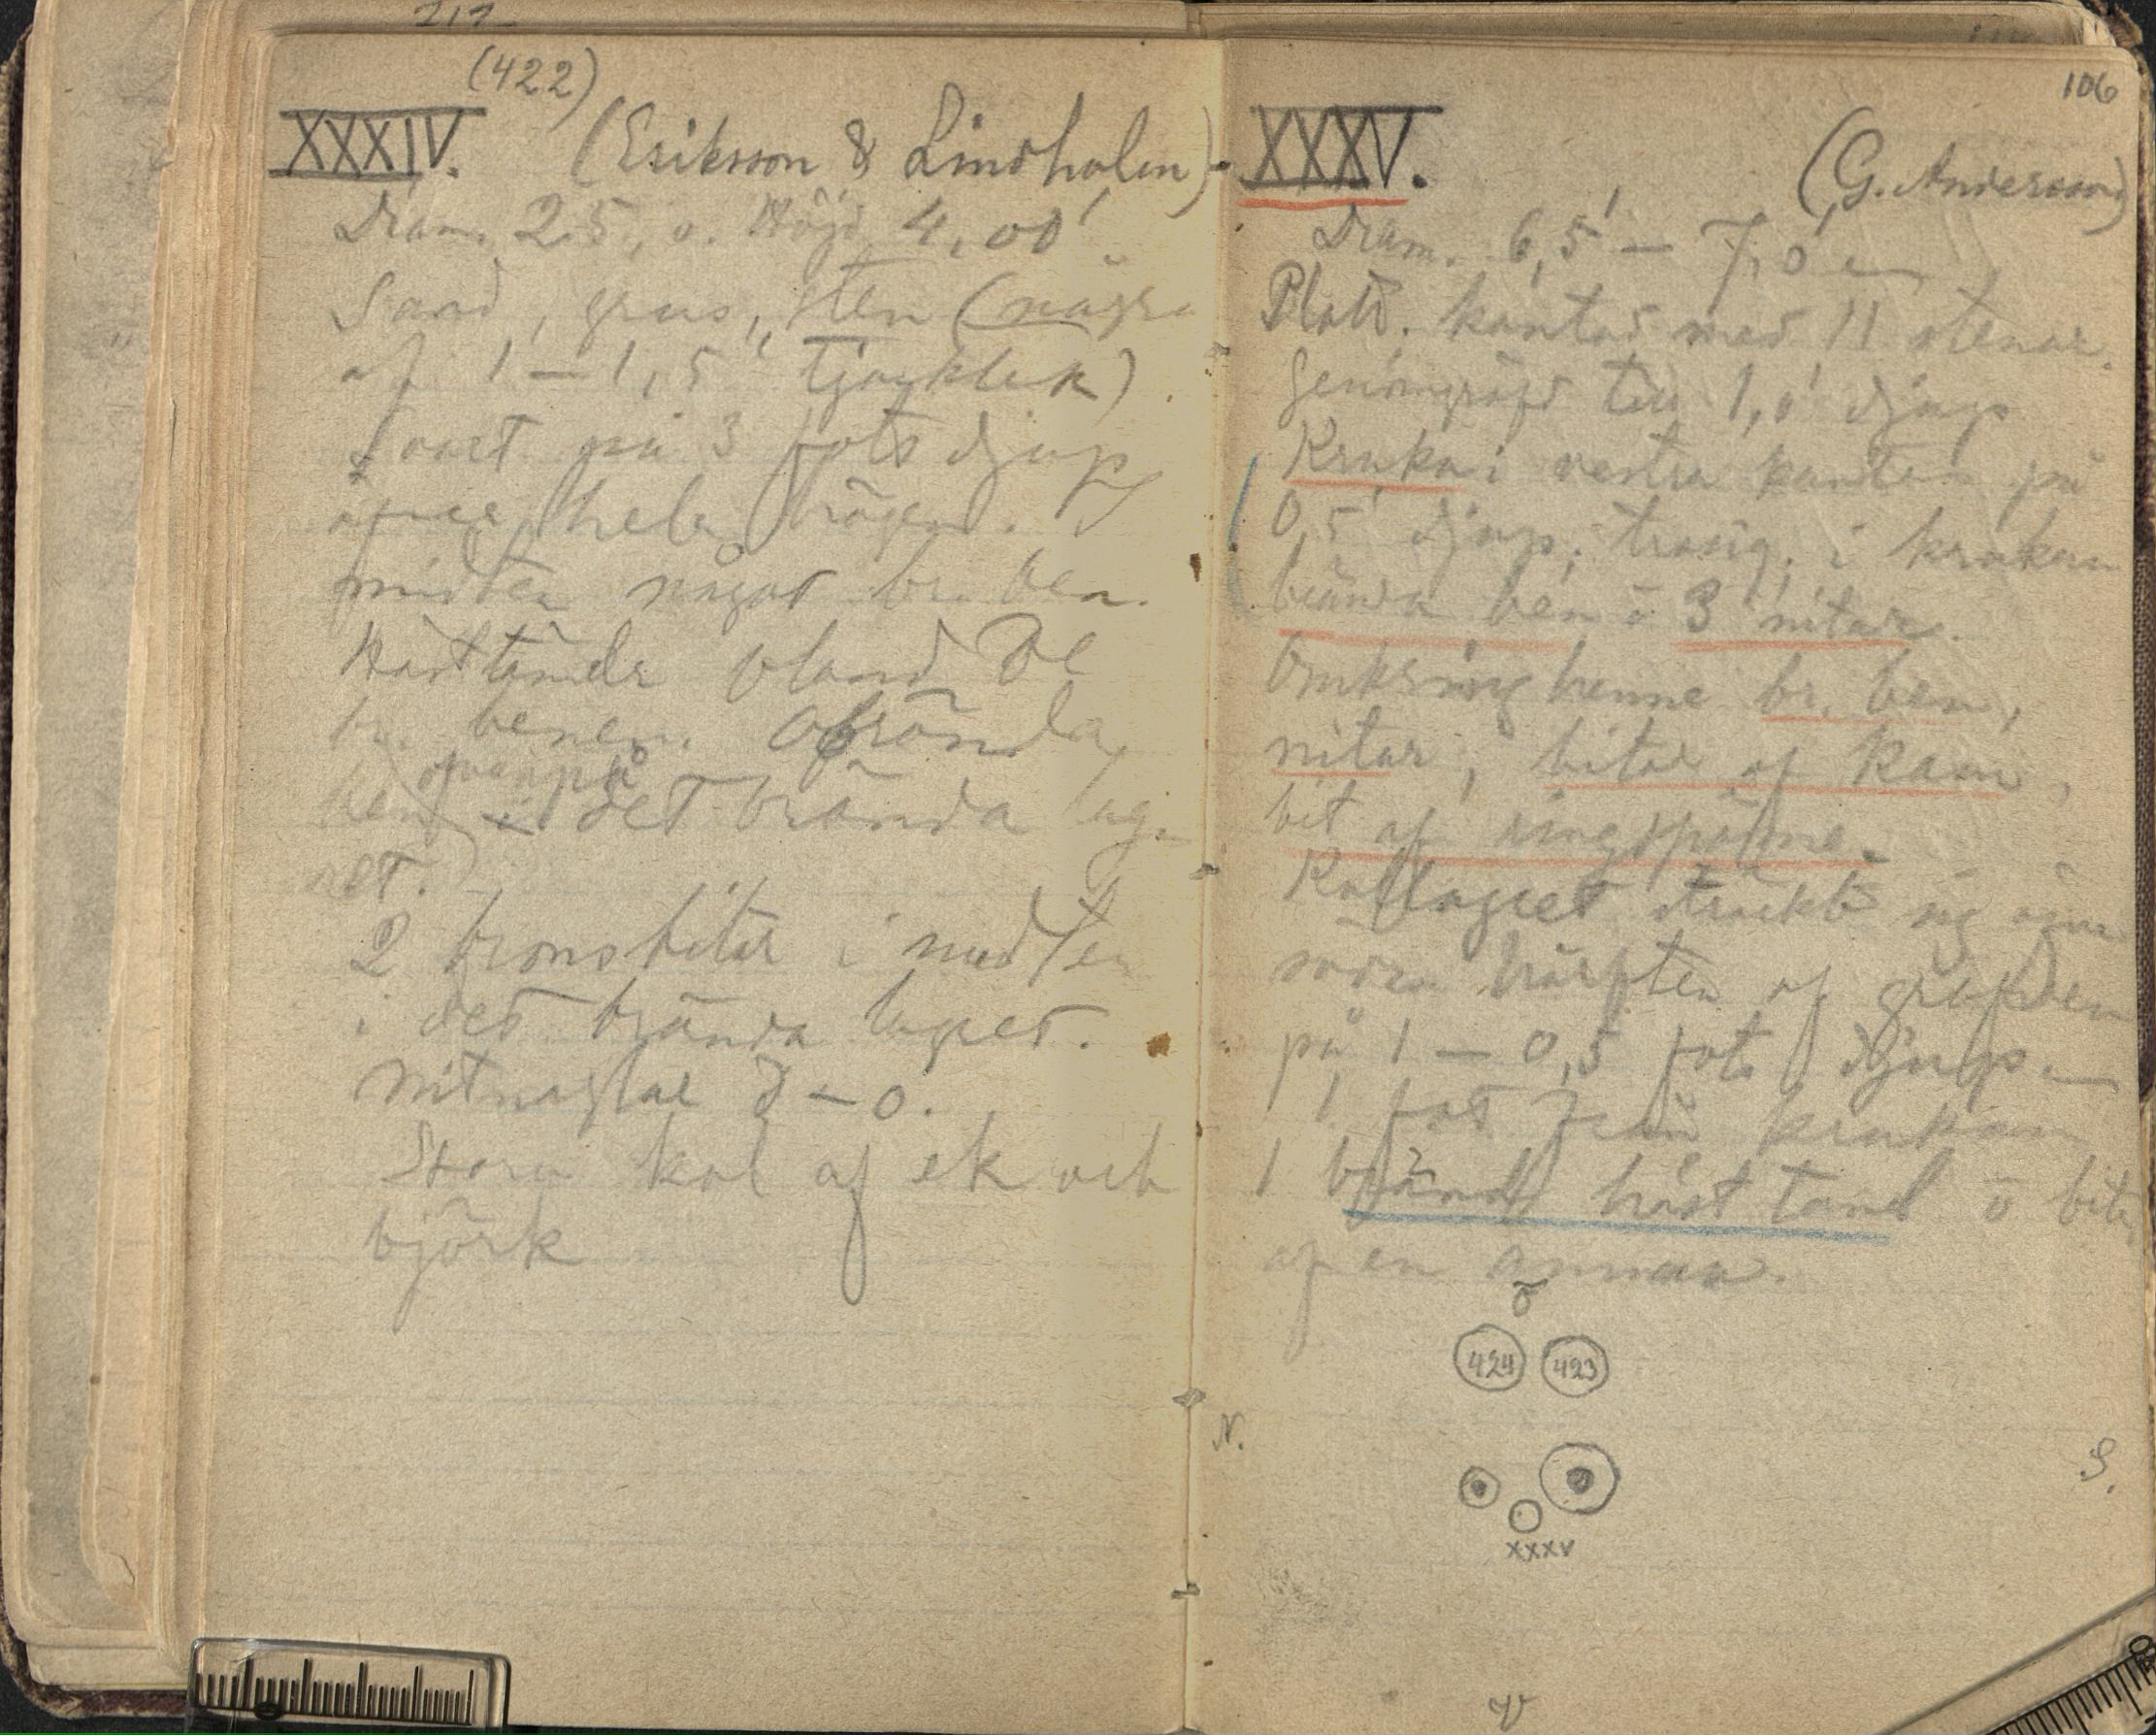 (422)
XXXIV. (Eriksson & Lindholm)
Diam. 25,0. Höjd 4,00'
Sand, grus, sten (några
af 1 — 1,5' tjocklek)
Svart på 3 fots djup
öfver hela högen. I
midten något br. ben.
Hästtänder bland de
br. benen. Obrända
ben ofvanpå det brända lag-
ret.
2 bronsbitar i midten
i det brända lagret.
Nitnaglar
Stora kol af ek och
björk
106
XXXV. (G. Andersson)
Diam. 6,5' — 7,0'
Platt. kantad med 11 stenar.
Genomgräfd till 1,0' djup
Kruka i vestra kanten på
0,5' djup; trasig; i krukan
brända ben o 3 nitar.
Omkring henne br. ben,
nitar, bitar af kam,
bit af ringspänne.
Kollagret sträckte sig öfver
södra hälften af grafven
på 1 — 0,5 fots djup
1 fot från krukan
1 bränd häst tand o bitar
af en annan.
Ö
424 423
N.
S.
XXXV
V